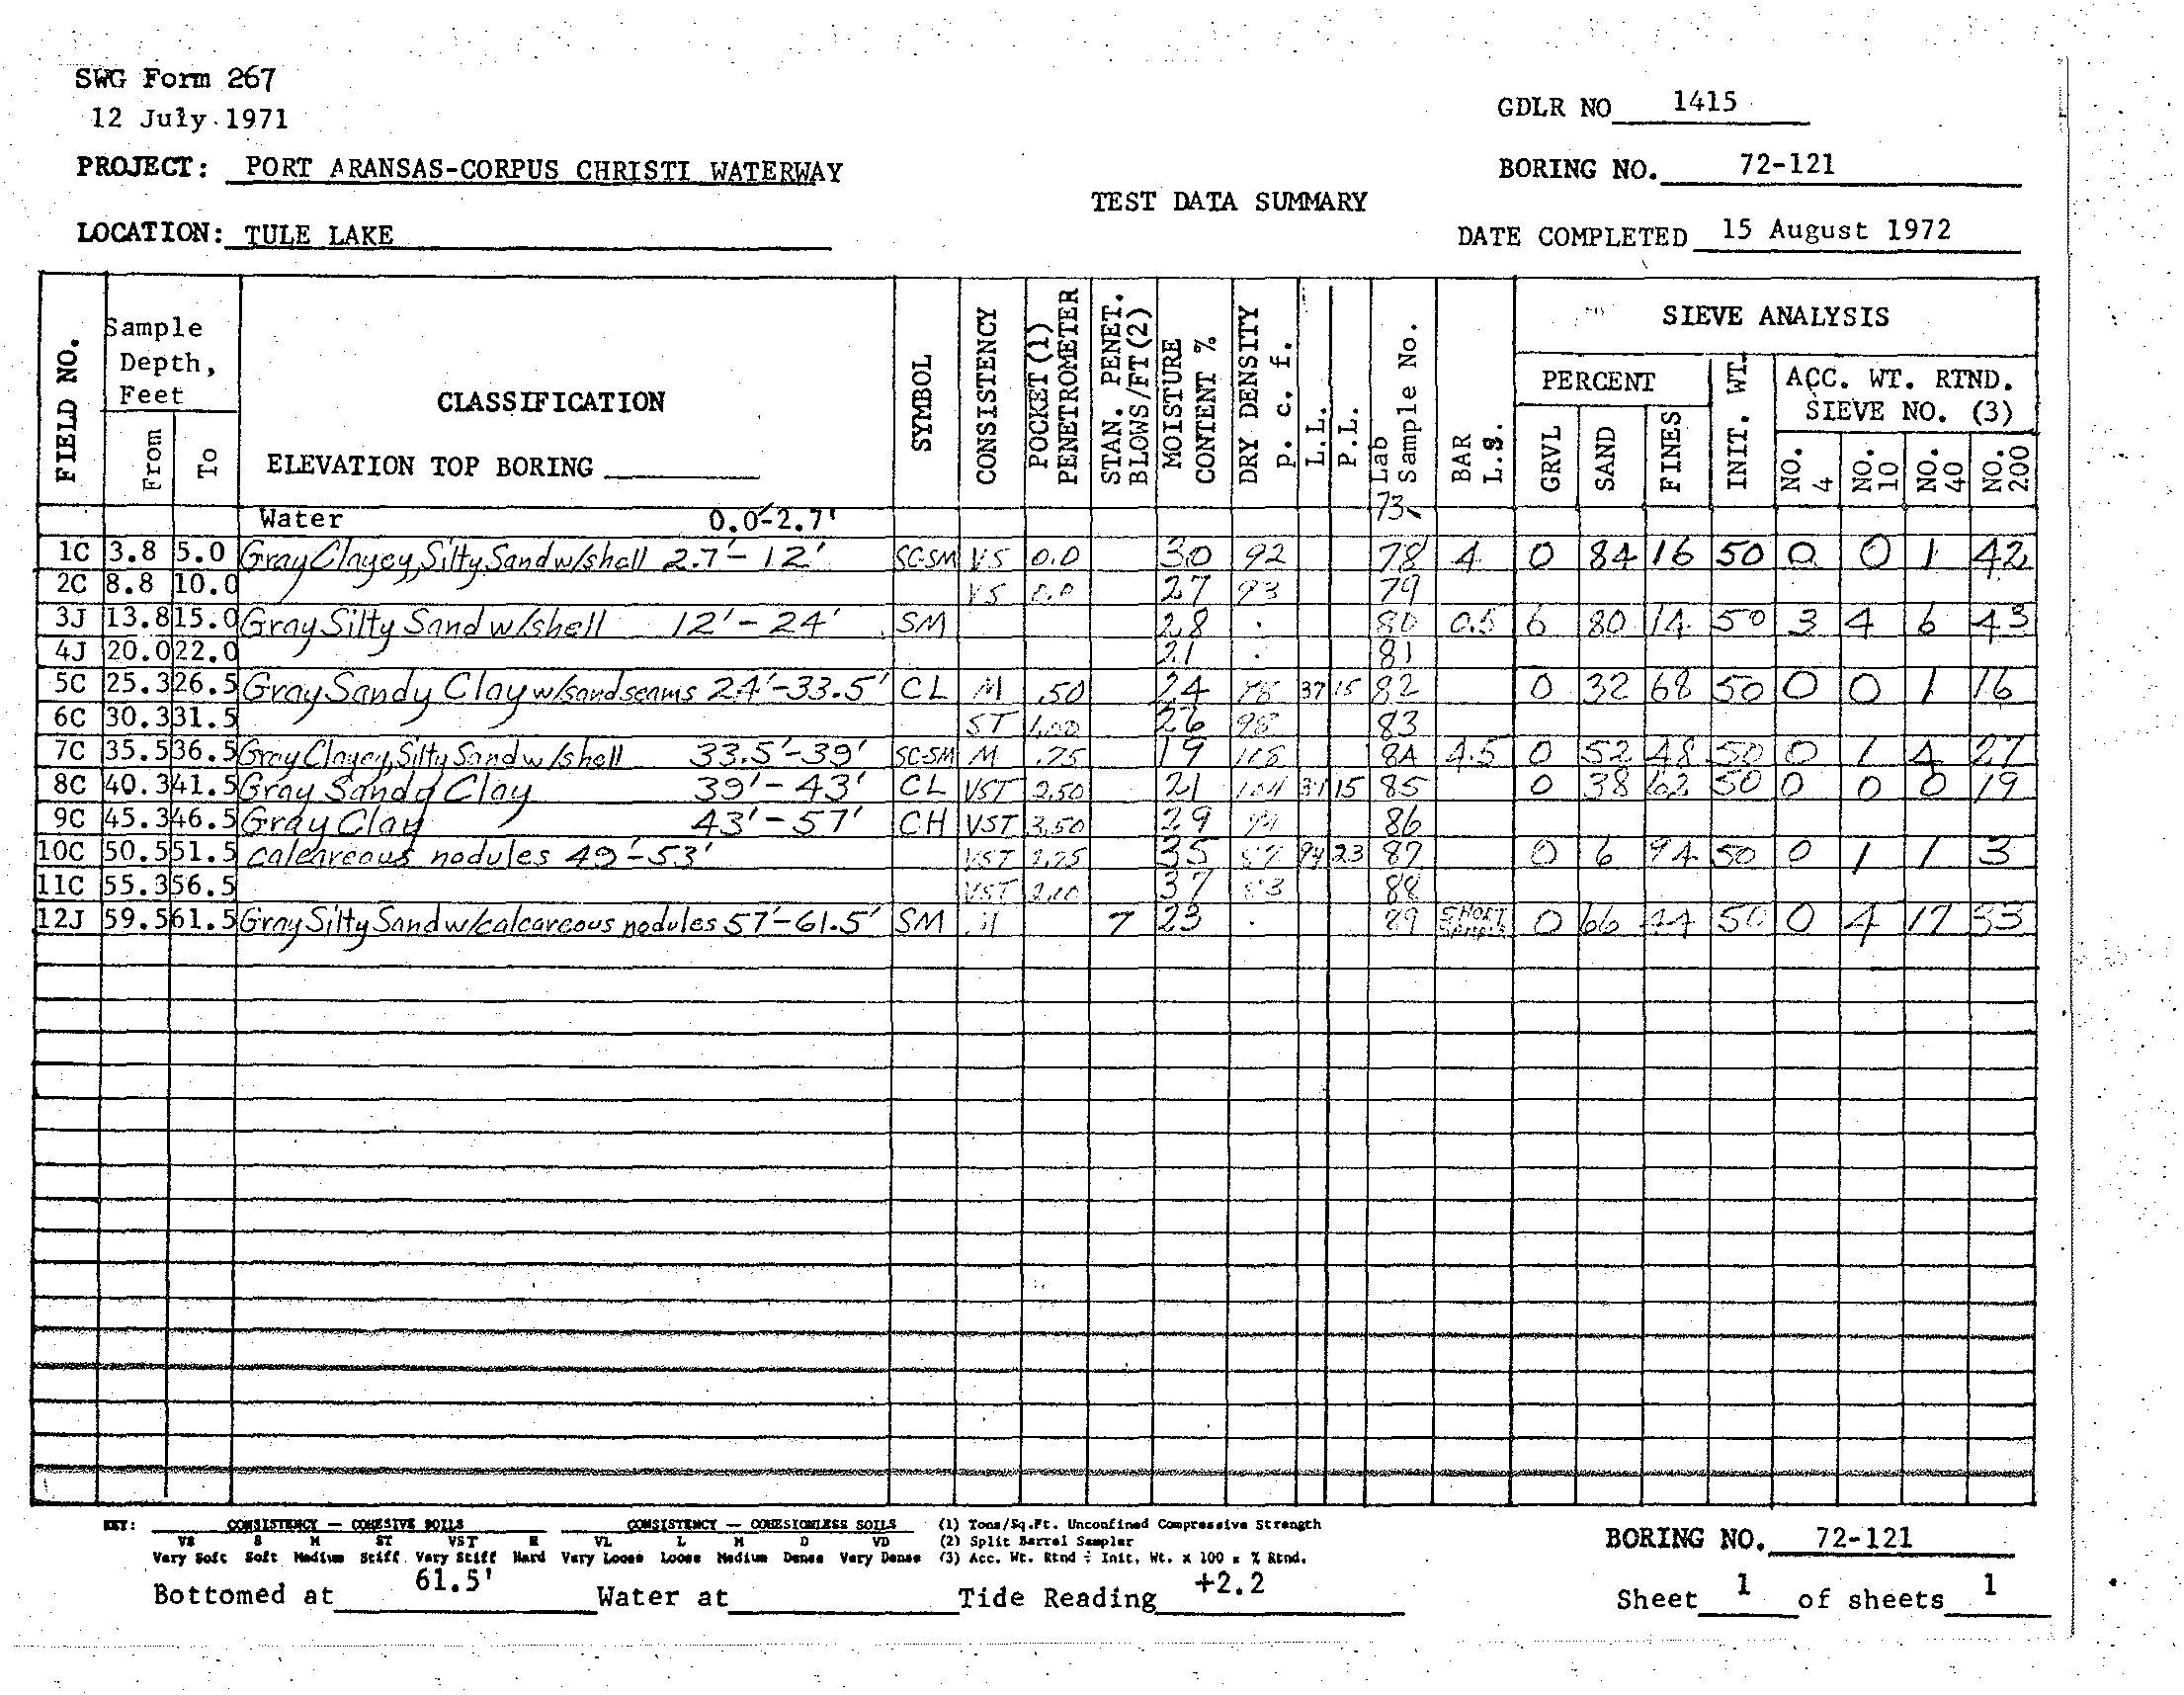 SWG Form 267
12 July 1971
GDLR NO 1415
PROJECT: PORT ARANSAS-CORPUS CHRISTI WATERWAY
BORING NO. 72-121
TEST DATA SUMMARY
LOCATION: TULE LAKE
DATE COMPLETED 15 August 1972
FIELD NO.
Sample Depth, Feet
From
To
CLASSIFICATION
ELEVATION TOP BORING
SYMBOL
CONSISTENCY
POCKET (1) PENETROMETER
STAN. PENET. BLOWS/FT (2)
MOISTURE CONTENT %
DRY DENSITY p. c. f.
L.L.
P.L.
Lab Sample No.
BAR L.S.
SIEVE ANALYSIS
PERCENT
GRVL
SAND
FINES
INIT. WT.
ACC. WT. RTND. SIEVE NO. (3)
NO. 4
NO. 10
NO. 40
NO. 200
Water 0.0'-2.7' 73-
1C 3.8 5.0 Gray Clayey, Silty Sand w/shell 2.7'-12' SC-SM VS 0.0 30 92 78 4 0 84 16 50 0 0 1 42
2C 8.8 10.0 VS 0.0 27 93 79
3J 13.8 15.0 Gray Silty Sand w/shell 12'-24' SM 28 80 0.5 6 80 14 50 3 4 6 43
4J 20.0 22.0 21 81
5C 25.3 26.5 Gray Sandy Clay w/sand seams 24'-33.5' CL M .50 24 37 15 82 0 32 68 50 0 0 1 16
6C 30.3 31.5 ST 1.00 26 98 83
7C 35.5 36.5 Gray Clayey, Silty Sand w/shell 33.5'-39' SC-SM M .75 19 84 4.5 0 52 48 50 0 1 4 27
8C 40.3 41.5 Gray Sandy Clay 39'-43' CL VST 2.50 21 104 31 15 85 0 38 62 50 0 0 0 19
9C 45.3 46.5 Gray Clay 43'-57' CH VST 3.50 29 86
10C 50.5 51.5 calcareous nodules 49'-53' VST 2.25 35 94 23 87 0 6 94 50 0 1 1 3
11C 55.3 56.5 VST 2.00 37 83 88
12J 59.5 61.5 Gray Silty Sand w/calcareous nodules 57'-61.5' SM 7 23 89 SHORT SAMPLE 0 66 44 50 0 4 17 33
KEY: CONSISTENCY — COHESIVE SOILS CONSISTENCY — COHESIONLESS SOILS (1) Tons/Sq.Ft. Unconfined Compressive Strength
VS S M ST VST H VL L M D VD (2) Split Barrel Sampler
Very Soft Soft Medium Stiff Very Stiff Hard Very Loose Loose Medium Dense Very Dense (3) Acc. Wt. Rtnd ÷ Init. Wt. x 100 = % Rtnd.
BORING NO. 72-121
Bottomed at 61.5' Water at Tide Reading +2.2
Sheet 1 of sheets 1